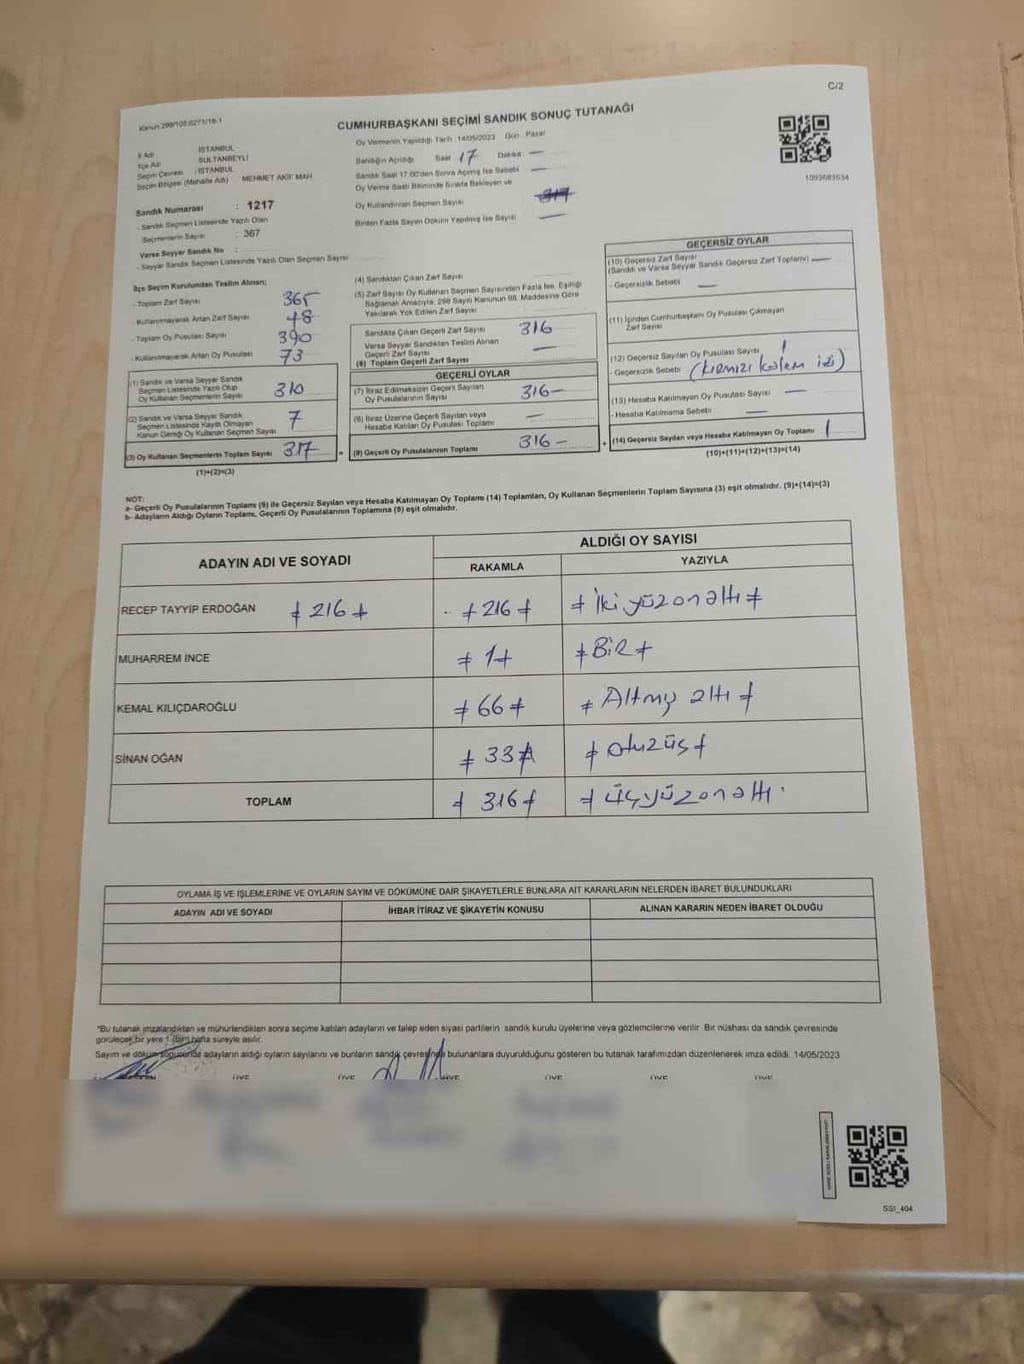 C/2
Kanun 298/105,6271/16-1
CUMHURBAŞKANI SEÇİMİ SANDIK SONUÇ TUTANAĞI
İl Adı : İSTANBUL
İlçe Adı : SULTANBEYLİ
Seçim Çevresi : İSTANBUL
Seçim Bölgesi (Mahalle Adı) : MEHMET AKİF MAH
Sandık Numarası : 1217
- Sandık Seçmen Listesinde Yazılı Olan
Seçmenlerin Sayısı : 367
Varsa Seyyar Sandık No :
- Seyyar Sandık Seçmen Listesinde Yazılı Olan Seçmen Sayısı
Oy Vermenin Yapıldığı Tarih : 14/05/2023 Gün : Pazar
Sandığın Açıldığı Saat 17 Dakika —
Sandık Saat 17:00'den Sonra Açılmış İse Sebebi —
Oy Verme Saati Bitiminde Sırada Bekleyen ve
Oy Kullandırılan Seçmen Sayısı
Birden Fazla Sayım Döküm Yapılmış İse Sayısı —
1093683534
İlçe Seçim Kurulundan Teslim Alınan;
- Toplam Zarf Sayısı 365
- Kullanılmayarak Artan Zarf Sayısı 48
- Toplam Oy Pusulası Sayısı 390
- Kullanılmayarak Artan Oy Pusulası 73
(1) Sandık ve Varsa Seyyar Sandık
Seçmen Listesinde Yazılı Olup
Oy Kullanan Seçmenlerin Sayısı 310
(2) Sandık ve Varsa Seyyar Sandık
Seçmen Listesinde Kayıtlı Olmayan
Kanun Gereği Oy Kullanan Seçmen Sayısı 7
(3) Oy Kullanan Seçmenlerin Toplam Sayısı 317
(1)+(2)=(3)
(4) Sandıktan Çıkan Zarf Sayısı
(5) Zarf Sayısı Oy Kullanan Seçmen Sayısından Fazla İse, Eşitliği
Sağlamak Amacıyla; 298 Sayılı Kanunun 98. Maddesine Göre
Yakılarak Yok Edilen Zarf Sayısı
Sandıkta Çıkan Geçerli Zarf Sayısı 316
Varsa Seyyar Sandıktan Teslim Alınan
Geçerli Zarf Sayısı —
(6) Toplam Geçerli Zarf Sayısı
GEÇERLİ OYLAR
(7) İtiraz Edilmeksizin Geçerli Sayılan
Oy Pusulasının Sayısı 316-
(8) İtiraz Üzerine Geçerli Sayılan veya
Hesaba Katılan Oy Pusulası Toplamı —
(9) Geçerli Oy Pusulalarının Toplamı 316-
GEÇERSİZ OYLAR
(10) Geçersiz Zarf Sayısı
(Sandık ve Varsa Seyyar Sandık Geçersiz Zarf Toplamı) —
- Geçersizlik Sebebi —
(11) İçinden Cumhurbaşkanı Oy Pusulası Çıkmayan
Zarf Sayısı
(12) Geçersiz Sayılan Oy Pusulası Sayısı 1
- Geçersizlik Sebebi (kırmızı kalem izi)
(13) Hesaba Katılmayan Oy Pusulası Sayısı —
- Hesaba Katılmama Sebebi —
(14) Geçersiz Sayılan veya Hesaba Katılmayan Oy Toplamı 1
(10)+(11)+(12)+(13)=(14)
NOT:
a- Geçerli Oy Pusulalarının Toplamı (9) ile Geçersiz Sayılan veya Hesaba Katılmayan Oy Toplamı (14) Toplamları, Oy Kullanan Seçmenlerin Toplam Sayısına (3) eşit olmalıdır. (9)+(14)=(3)
b- Adayların Aldığı Oyların Toplamı, Geçerli Oy Pusulalarının Toplamına (9) eşit olmalıdır.
ADAYIN ADI VE SOYADI
ALDIĞI OY SAYISI
RAKAMLA YAZIYLA
RECEP TAYYİP ERDOĞAN ≠216≠ ≠216≠ ≠İkiyüzonaltı≠
MUHARREM İNCE ≠1≠ ≠Bir≠
KEMAL KILIÇDAROĞLU ≠66≠ ≠Altmış altı≠
SİNAN OĞAN ≠33≠ ≠otuzüç≠
TOPLAM ≠316≠ ≠üçyüzonaltı
OYLAMA İŞ VE İŞLEMLERİNE VE OYLARIN SAYIM VE DÖKÜMÜNE DAİR ŞİKAYETLERLE BUNLARA AİT KARARLARIN NELERDEN İBARET BULUNDUKLARI
ADAYIN ADI VE SOYADI İHBAR İTİRAZ VE ŞİKAYETİN KONUSU ALINAN KARARIN NEDEN İBARET OLDUĞU
*Bu tutanak imzalandıktan ve mühürlendikten sonra seçime katılan adayların ve talep eden siyasi partilerin sandık kurulu üyelerine veya gözlemcilerine verilir. Bir nüshası da sandık çevresinde
görülecek bir yere 1 (bir) hafta süreyle asılır.
Sayım ve döküm sonucunda adayların aldığı oyların sayılarını ve bunların sandık çevresinde bulunanlara duyurulduğunu gösteren bu tutanak tarafımızdan düzenlenerek imza edildi. 14/05/2023
ÜYE ÜYE ÜYE ÜYE ÜYE ÜYE
SSI_404